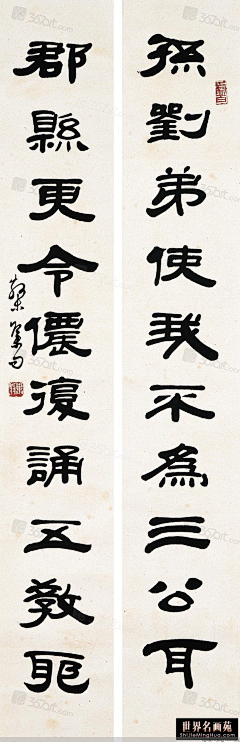 孫劉弟使我不為三公耳
郡縣更令儂復誦五教耶
世界名画苑
ShiJieMingHua.com